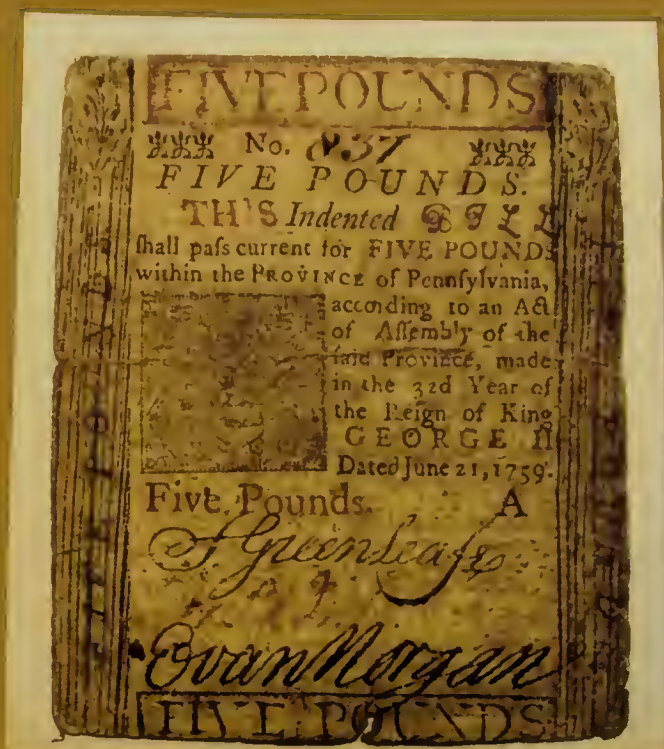 FIVE POUNDS
No. 837
FIVE POUNDS.
TH'S Indented BILL
ſhall paſs current for FIVE POUNDS
within the PROVINCE of Pennſylvania,
according to an Act
of Aſſembly of the
ſaid Province, made
in the 32d Year of
the Reign of King
GEORGE II
Dated June 21, 1759.
Five Pounds. A
Greenleafe
Evan Morgan
FIVE POUNDS